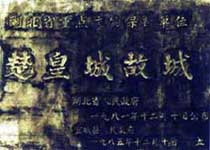 湖北省重点文物保护单位
楚皇城故城
湖北省人民政府
一九八一年十二月十日公布
宜城县人民政府
一九八五年十二月十日立